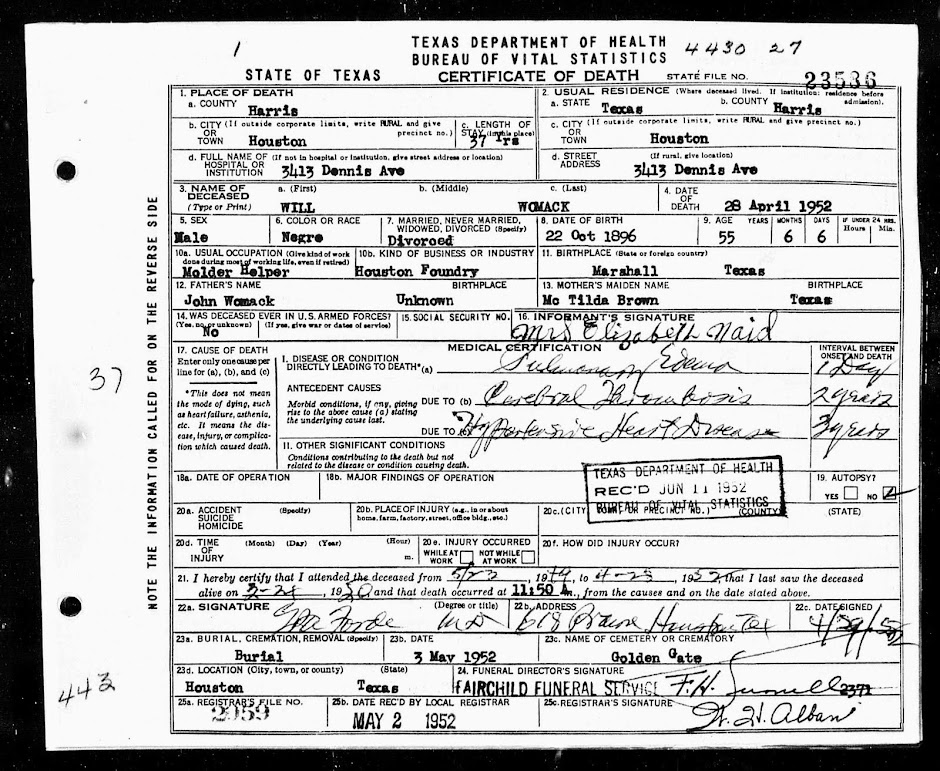 1
TEXAS DEPARTMENT OF HEALTH
4430 27
BUREAU OF VITAL STATISTICS
STATE OF TEXAS CERTIFICATE OF DEATH STATE FILE NO. 23536
1. PLACE OF DEATH
a. COUNTY Harris
2. USUAL RESIDENCE (Where deceased lived. If institution: residence before admission).
a. STATE Texas b. COUNTY Harris
b. CITY (If outside corporate limits, write RURAL and give precinct no.)
OR
TOWN Houston
c. LENGTH OF STAY (in this place) 37 Yrs
c. CITY (If outside corporate limits, write RURAL and give precinct no.)
OR
TOWN Houston
d. FULL NAME OF (If not in hospital or institution, give street address or location)
HOSPITAL OR
INSTITUTION 3413 Dennis Ave
d. STREET (If rural, give location)
ADDRESS 3413 Dennis Ave
3. NAME OF DECEASED (Type or Print)
a. (First) b. (Middle) c. (Last)
WILL WOMACK
4. DATE OF DEATH 28 April 1952
5. SEX Male
6. COLOR OR RACE Negro
7. MARRIED, NEVER MARRIED, WIDOWED, DIVORCED (Specify) Divorced
8. DATE OF BIRTH 22 Oct 1896
9. AGE YEARS MONTHS DAYS IF UNDER 24 HRS. Hours Min.
55 6 6
10a. USUAL OCCUPATION (Give kind of work done during most of working life, even if retired)
Molder Helper
10b. KIND OF BUSINESS OR INDUSTRY
Houston Foundry
11. BIRTHPLACE (State or foreign country)
Marshall Texas
12. FATHER'S NAME BIRTHPLACE
John Womack Unknown
13. MOTHER'S MAIDEN NAME BIRTHPLACE
Mc Tilda Brown Texas
14. WAS DECEASED EVER IN U.S. ARMED FORCES?
(Yes, no, or unknown) (If yes, give war or dates of service)
No
15. SOCIAL SECURITY NO.
16. INFORMANT'S SIGNATURE
Mrs Elizabeth Naid
17. CAUSE OF DEATH
Enter only one cause per line for (a), (b), and (c)
*This does not mean the mode of dying, such as heart failure, asthenia, etc. It means the disease, injury, or complication which caused death.
MEDICAL CERTIFICATION
INTERVAL BETWEEN ONSET AND DEATH
I. DISEASE OR CONDITION
DIRECTLY LEADING TO DEATH* (a) Pulmonary Edema 1 Day
ANTECEDENT CAUSES
Morbid conditions, if any, giving rise to the above cause (a) stating the underlying cause last.
DUE TO (b) Cerebral Thrombosis 2 years
DUE TO (c) Hypertensive Heart Disease 3 years
11. OTHER SIGNIFICANT CONDITIONS
Conditions contributing to the death but not related to the disease or condition causing death.
18a. DATE OF OPERATION
18b. MAJOR FINDINGS OF OPERATION
TEXAS DEPARTMENT OF HEALTH
REC'D JUN 11 1952
BUREAU OF VITAL STATISTICS
19. AUTOPSY?
YES NO
20a. ACCIDENT (Specify)
SUICIDE
HOMICIDE
20b. PLACE OF INJURY (e.g., in or about home, farm, factory, street, office bldg., etc.)
20c. (CITY, TOWN, OR PRECINCT NO.) (COUNTY) (STATE)
20d. TIME (Month) (Day) (Year) (Hour)
OF
INJURY m.
20e. INJURY OCCURRED
WHILE AT WORK NOT WHILE AT WORK
20f. HOW DID INJURY OCCUR?
21. I hereby certify that I attended the deceased from 5/23, 1949, to 4-28, 1952 that I last saw the deceased
alive on, 19 and that death occurred at 11:50 A m., from the causes and on the date stated above.
22a. SIGNATURE (Degree or title)
MD
22b. ADDRESS
618 Prairie Houston Tex
22c. DATE SIGNED
4/29/52
23a. BURIAL, CREMATION, REMOVAL (Specify)
Burial
23b. DATE
3 May 1952
23c. NAME OF CEMETERY OR CREMATORY
Golden Gate
23d. LOCATION (City, town, or county) (State)
Houston Texas
24. FUNERAL DIRECTOR'S SIGNATURE
FAIRCHILD FUNERAL SERVICE F. H. 2371
25a. REGISTRAR'S FILE NO.
2059
25b. DATE REC'D BY LOCAL REGISTRAR
MAY 2 1952
25c. REGISTRAR'S SIGNATURE
W. H. Alban
NOTE THE INFORMATION CALLED FOR ON THE REVERSE SIDE
37
443